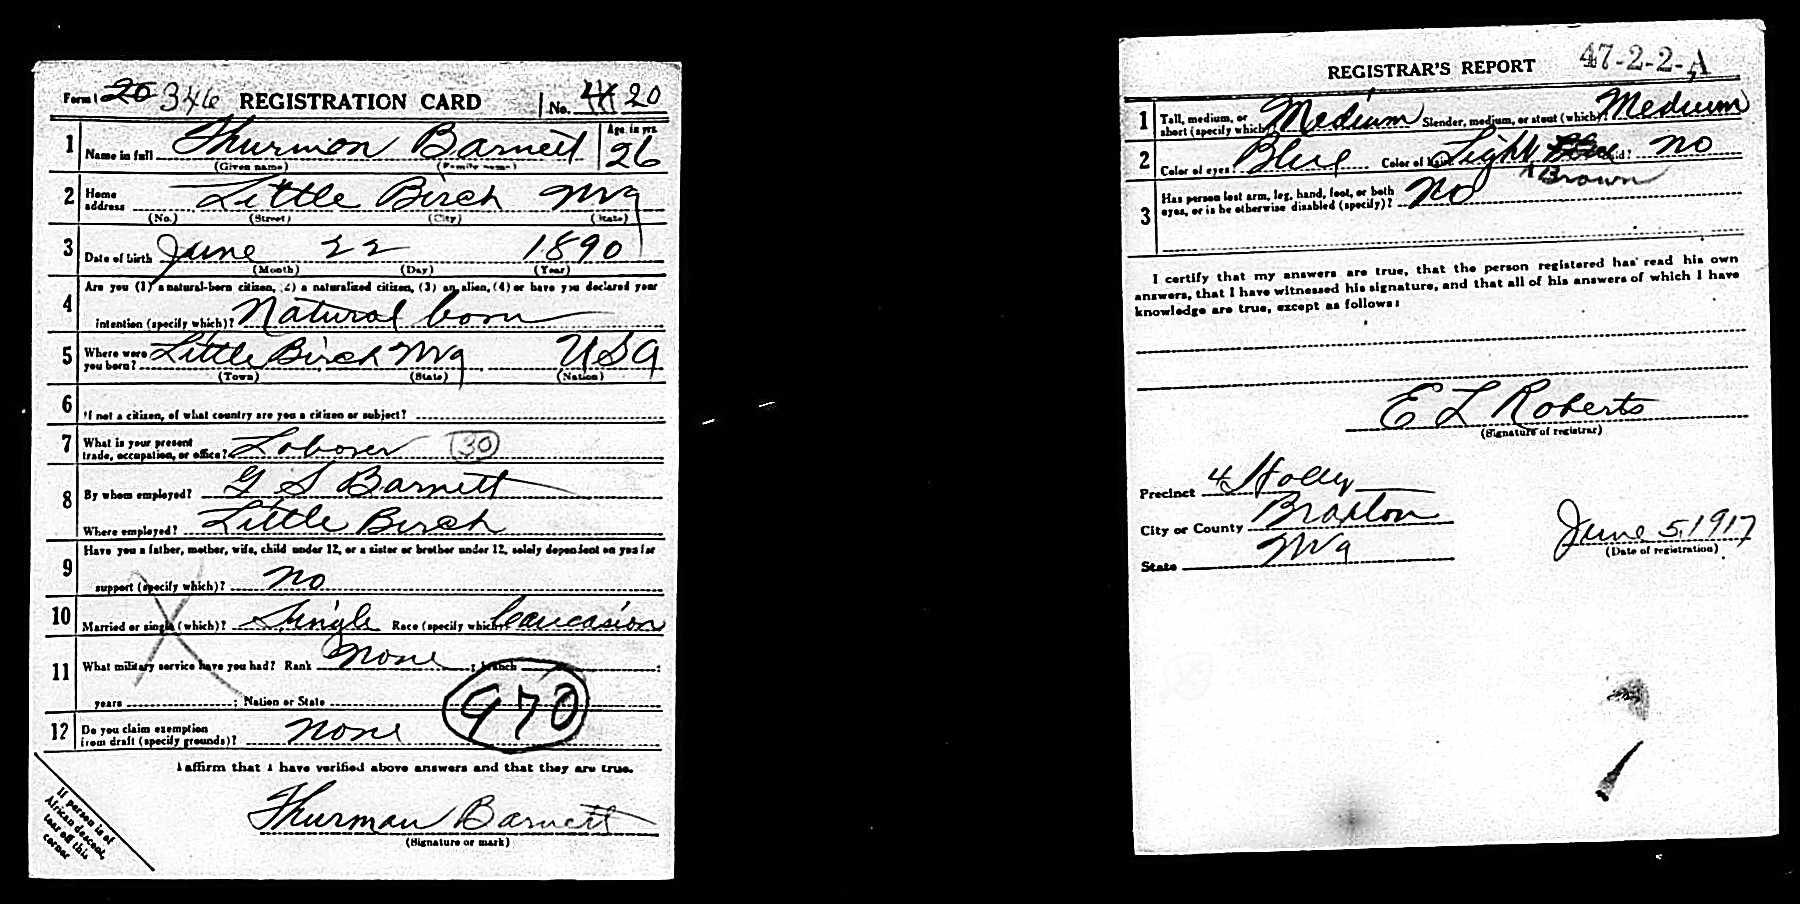 Form 1 20 346 REGISTRATION CARD No. 44 20
1 Name in full Thurmon Barnett Age, in yrs. 26
(Given name) (Family name)
2 Home address Little Birch WVa
(No.) (Street) (City) (State)
3 Date of birth June 22 1890
(Month) (Day) (Year)
4 Are you (1) a natural-born citizen, (2) a naturalized citizen, (3) an alien, (4) or have you declared your
intention (specify which)? Natural born
5 Where were you born? Little Birch WVa USA
(Town) (State) (Nation)
6 If not a citizen, of what country are you a citizen or subject?
7 What is your present trade, occupation, or office? Laborer 30
8 By whom employed? G S Barnett
Where employed? Little Birch
9 Have you a father, mother, wife, child under 12, or a sister or brother under 12, solely dependent on you for
support (specify which)? no
10 Married or single (which)? Single Race (specify which)? Caucasion
11 What military service have you had? Rank None ; branch ;
years ; Nation or State
970
12 Do you claim exemption from draft (specify grounds)? None
I affirm that I have verified above answers and that they are true.
Thurman Barnett
(Signature or mark)
If person is of
African descent,
tear off this
corner
REGISTRAR'S REPORT 47-2-2-A
1 Tall, medium, or short (specify which)? Medium Slender, medium, or stout (which)? Medium
2 Color of eyes? Blue Color of hair? Light Brown Bald? No
3 Has person lost arm, leg, hand, foot, or both
eyes, or is he otherwise disabled (specify)? No
I certify that my answers are true, that the person registered has read his own
answers, that I have witnessed his signature, and that all of his answers of which I have
knowledge are true, except as follows:
E L Roberts
(Signature of registrar)
Precinct 4 Holly
City or County Braxton
State WVa
June 5, 1917
(Date of registration)